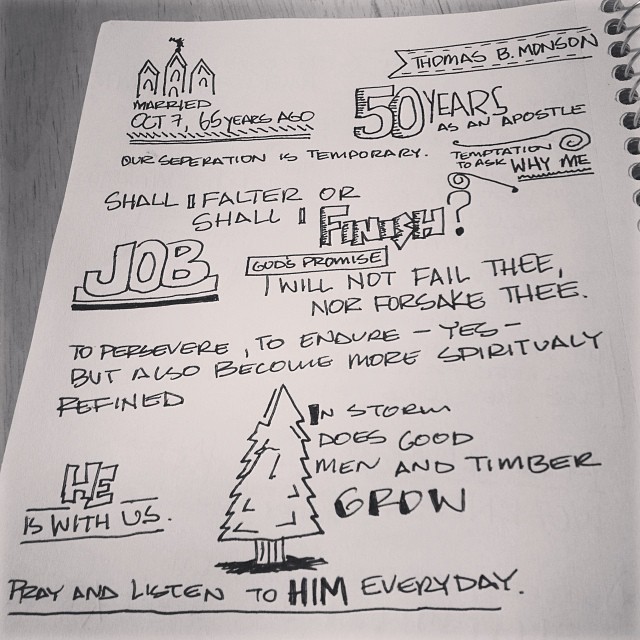 THOMAS B. MONSON
MARRIED
OCT 7, 65 YEARS AGO
50 YEARS
AS AN APOSTLE
OUR SEPERATION IS TEMPORARY.
TEMPTATION
TO ASK WHY ME
SHALL I FALTER OR
SHALL I FINISH?
JOB
GOD'S PROMISE
I WILL NOT FAIL THEE,
NOR FORSAKE THEE.
TO PERSEVERE, TO ENDURE - YES -
BUT ALSO BECOME MORE SPIRITUALY
REFINED
IN STORM
DOES GOOD
MEN AND TIMBER
GROW
HE
IS WITH US.
PRAY AND LISTEN TO HIM EVERYDAY.